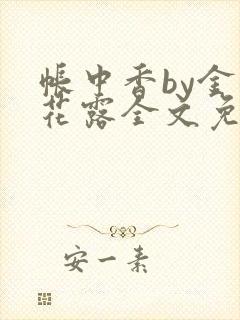 帐中香by金
花露全文免
安一素